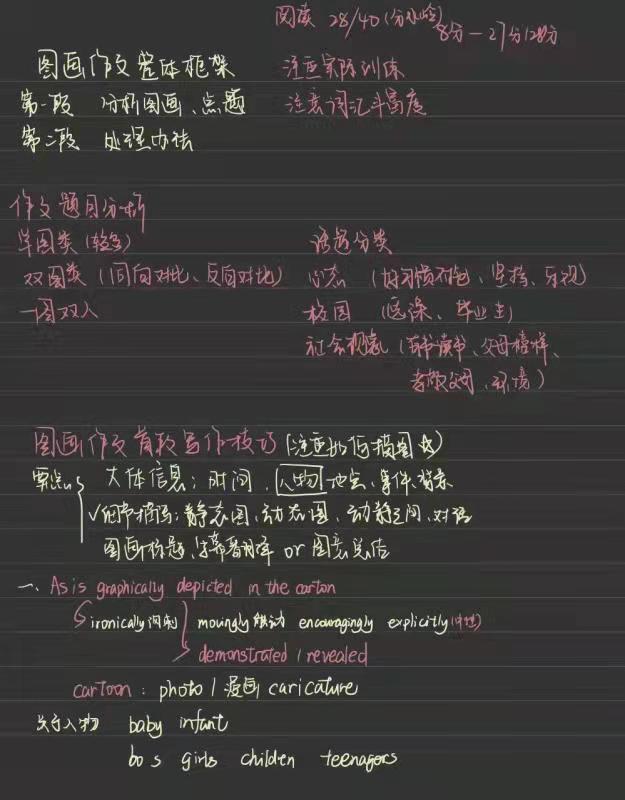 阅读 28/40(分水岭) 8分—27分/28分
图画作文整体框架 注重实际训练
第一段 分析图画、点题 注意词汇丰富度
第二段 处理办法
作文题目分析
单图类(较多) 话题分类
双图类(同向对比、反向对比) 心态 (坚持、乐观)
一图双入 校园 (选课、毕业生)
社会现象(读书、父母榜样、
孝敬父母、环境)
图画作文首段写作技巧(注重如何描图)
要点 大体信息:时间、人物、地点、事件、背景
√细节描写:静态图、动态图、动静之间、对话
图画标题、字幕翻译 or 图意总结
一、As is graphically depicted in the carton
ironically 讽刺 movingly 感动 encouragingly explicitly(中性)
demonstrated / revealed
cartoon : photo / 漫画 caricature
关于人物 baby infant
bo s girls children teenagers